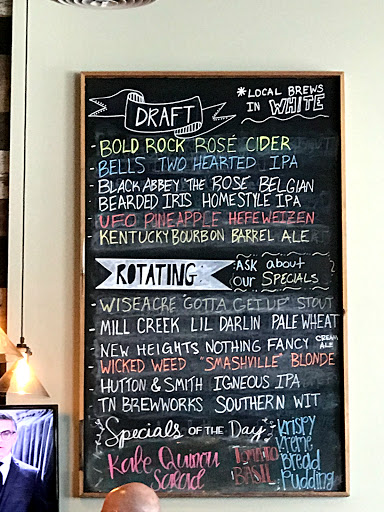 DRAFT
*LOCAL BREWS
IN WHITE
- BOLD ROCK ROSÉ CIDER
- BELLS TWO HEARTED IPA
- BLACK ABBEY THE ROSE BELGIAN
BEARDED IRIS HOMESTYLE IPA
- UFO PINEAPPLE HEFEWEIZEN
KENTUCKY BOURBON BARREL ALE
ROTATING
ASK about
our SPECIALS
- WISEACRE "GOTTA GET UP" STOUT
- MILL CREEK LIL DARLIN PALE WHEAT
NEW HEIGHTS NOTHING FANCY CREAM ALE
- WICKED WEED "SMASHVILLE" BLONDE
- HUTTON & SMITH IGNEOUS IPA
- TN BREWWORKS SOUTHERN WIT
Specials OF THE Day
Kale Quinoa
Salad
TOMATO
BASIL
Krispy
Kreme
Bread
Pudding